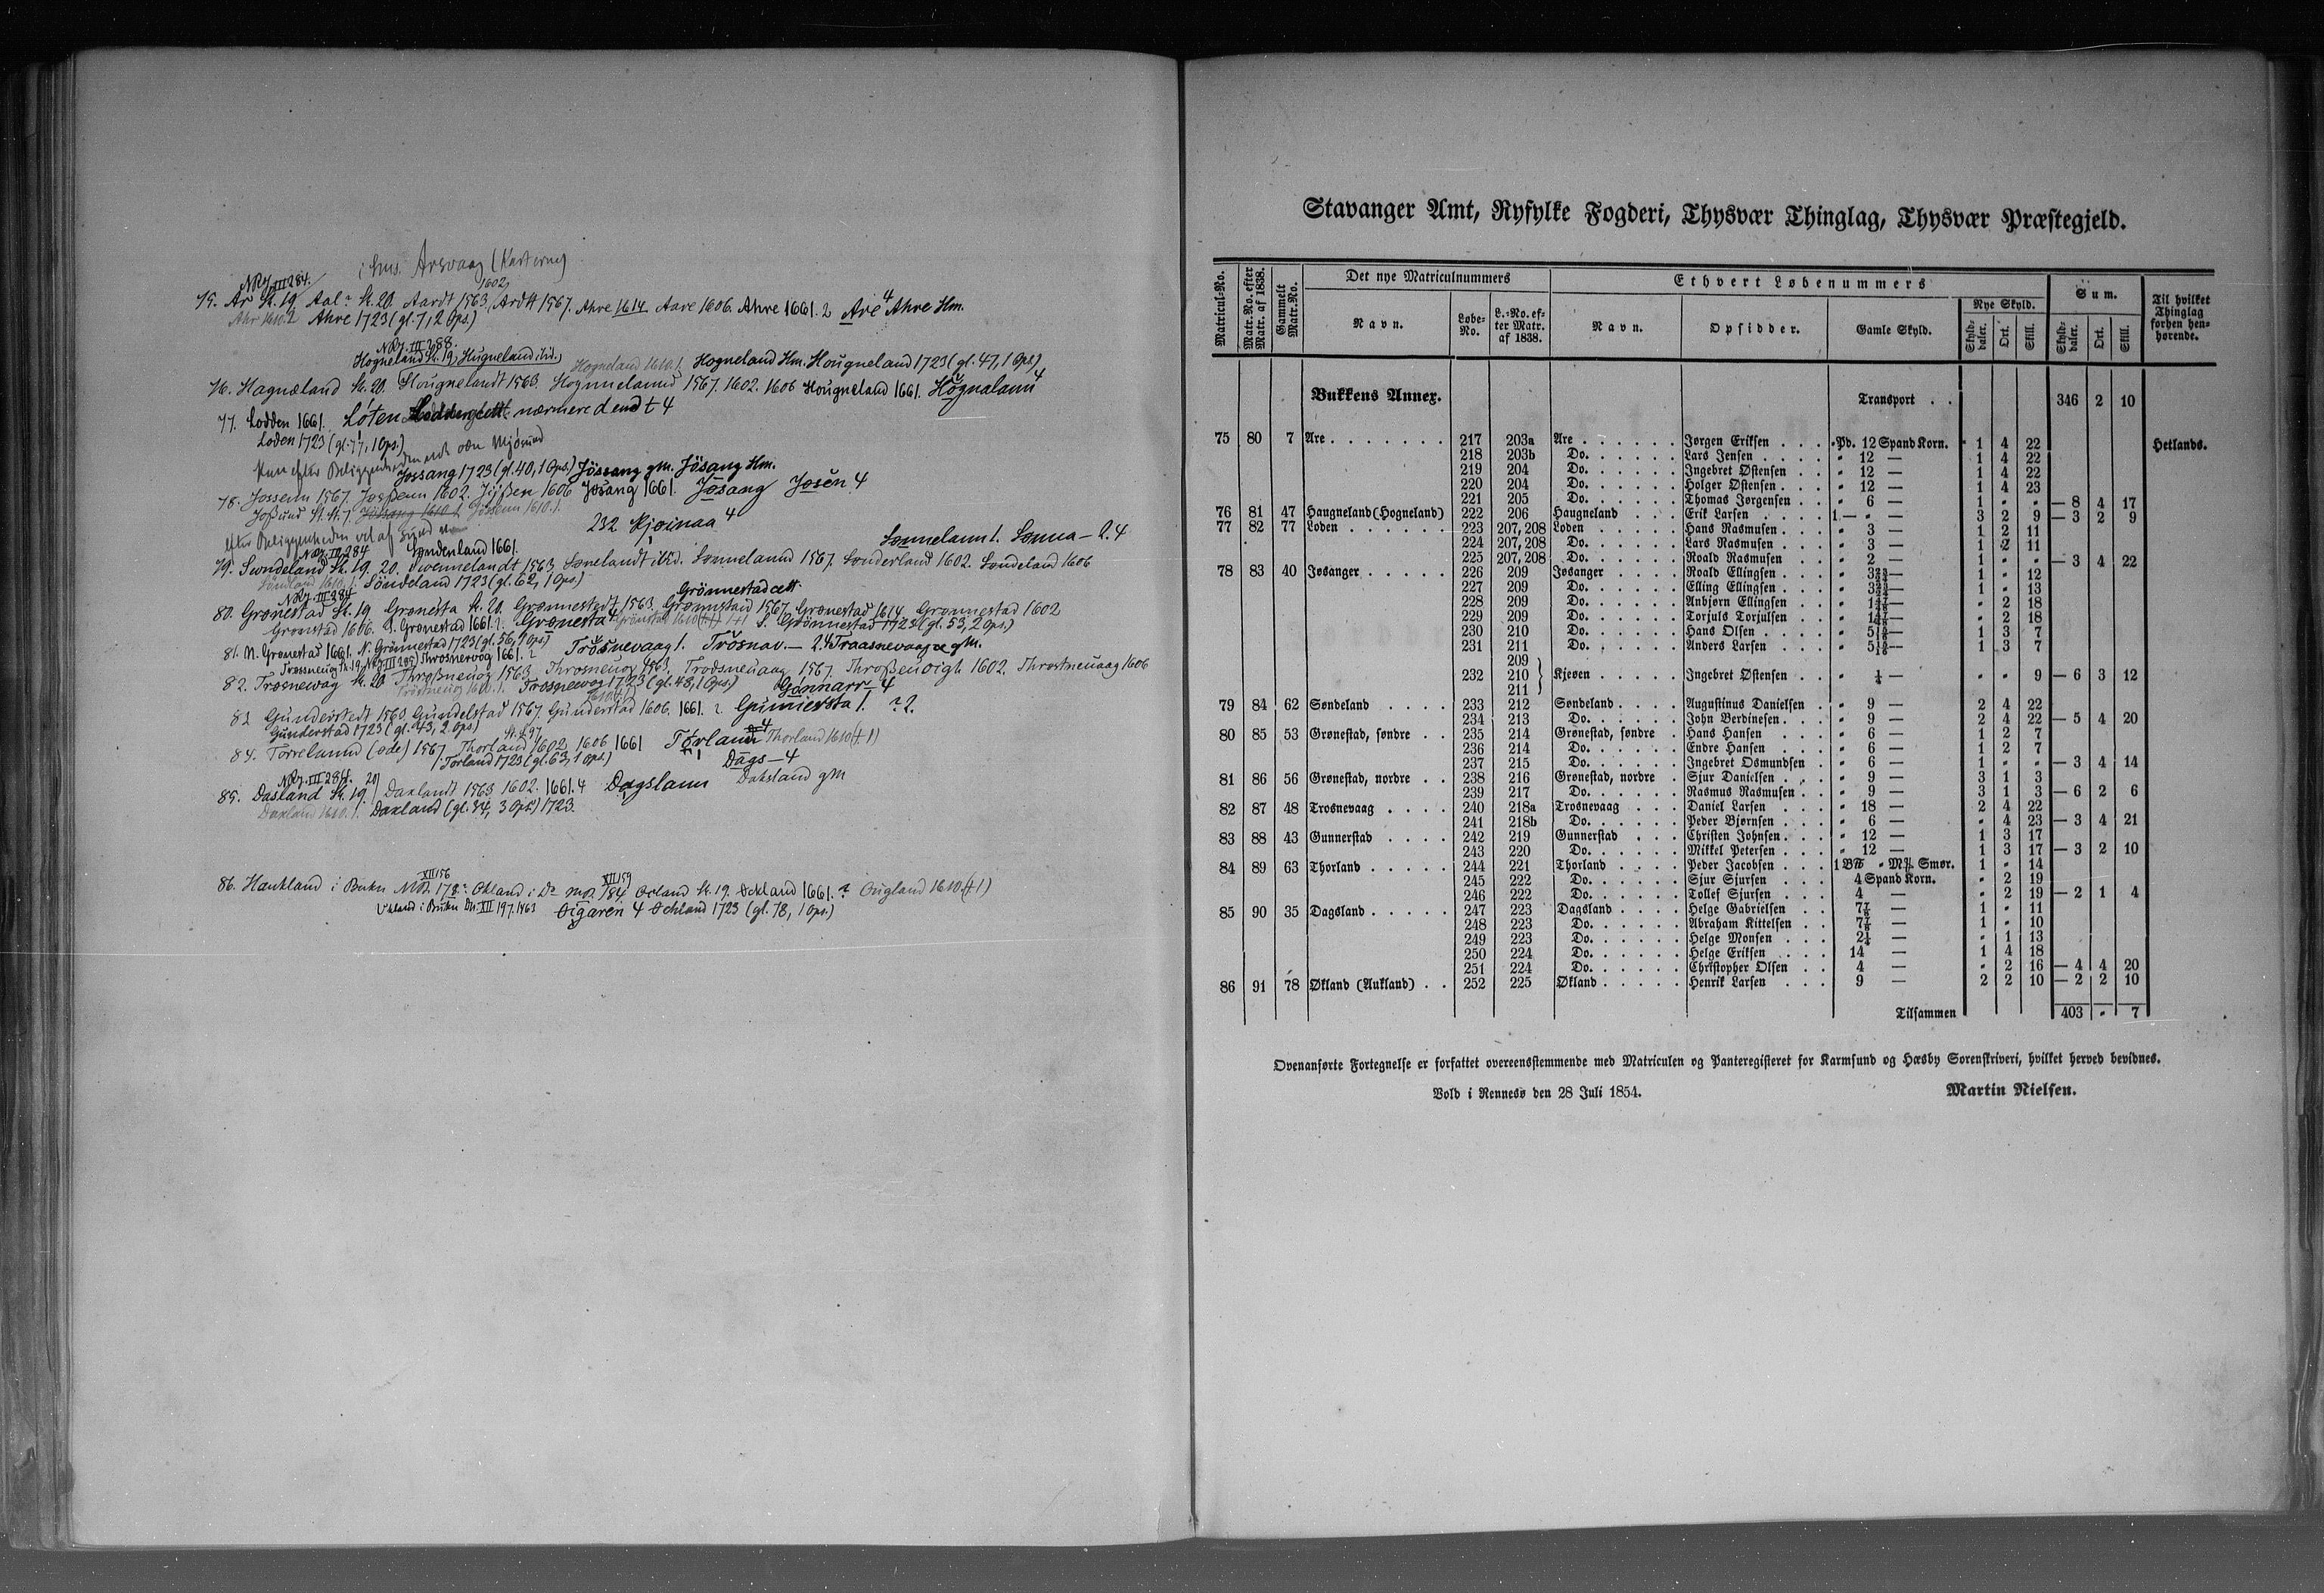 i hns. Arsvaag (Kasterne)
NRJ. III 284.
1602,
75. Ar St. 19. Aal? St. 20. Aardt 1563, Ardtt 1567. Ahre 1614 Aare 1606. Ahre 1661. 2 Are 4 Ahre Hm.
Ahr 1610.2 Ahre 1723 (gl. 7, 2 Ops.)
NRJ. III 288.
Hogneland St. 19, Hugneland ibid., Hogneland 1610.1. Hogneland Hm. Hougneland 1723 (gl. 47, 1 Ops.)
76. Hagnæland St. 20. Hougnelandt 1563. Hognnelannd 1567. 1602. 1606 Hougneland 1661. Hognalann 4
77. Lodden 1661. Løten nærmere d end t 4
Loden 1723 (gl. 77, 1 Ops.)
Jossang 1723 (gl. 40, 1 Ops.) Jössang gM. Jösang Hm.
78. Jossenn 1567. Josßenn 1602. Jijßen 1606 Josang 1661. Josang Josen 4
Joßund St. 87. Jossang 1610.1 Jossenn 1610.1.
232. Kjoinaa 4
efter Beliggenheden vel af Sund
NRJ. III 284 Søndenland 1661. Sonnelann 1. Sonna — 2.4
79. Swndeland St. 19. 20. Swennelandt 1563, Sønelandt ibid. Sonnelannd 1567. Sonderland 1602. Sondeland 1606
Søndland 1610.1. Söndeland 1723 (gl. 62, 1 Ops.)
NRJ. III 284 Grönnestad cett.
80. Grønestad St. 19 Grønesta St. 20. Grønnestedt 1563. Grønnstad 1567. Grønestad 1614. Grønnestad 1602
Gronstad 1606. S. Gronestad 1661. 2. Grønesta 4 Grönstad 1610 S. Grönnestad 1723 (gl. 53, 2 Ops.)
81. N. Gronestad 1661. N. Grönnestad 1723 (gl. 56, 1 Ops.) Trosnevaag 1. Trosnav — 2.4 Traasnevaag gM.
Trossneuog St. 19, NRJ. III 285 Throsnervog 1661. 2
82. Trosnewag St. 20 Throßneuog 1563. Throsneuog 1563. Trodsneuaag 1567. Throßeuoigh 1602. Throstneuaag 1606
Trosneuog 1610.1. Trosnevog 1723 (gl. 48, 1 Ops.) Gonnarr — 4
83. Gunderstedt 1560. Gundelstad 1567. Gunderstad 1606. 1661. 2. Gunnersta 1. ? 2.
Gunderstad 1723 (gl. 43, 2 Ops.)
84. Torrelannd (øde) 1567. Thorland 1602, 1606, 1661 Torland 4 Thorland 1610 (+1)
Torland 1723 (gl. 63, 1 Ops.) Dags — 4
NRJ. III 284. 20
85. Dasland St. 19, Daxlandt 1563 1602. 1661. 4 Dagslann Daksland gM
Daxland 1610.1. Daxland (gl. 34, 3 Ops.) 1723.
XII 156 XII 159
86. Haukland i Bukn NR. 178? Økland i Do NR. 184 Ocland St. 19. Ockland 1661. 2 Ougland 1610 (+1)
Ukland i Bukn DN. XII 197. 1463 Oigaren 4 Ochland 1723 (gl. 78, 1 Ops.)
Stavanger Amt, Ryfylke Fogderi, Thysvær Thinglag, Thysvær Præstegjeld.
Matricul-No. Matr.-No. efter Matr. af 1838. Gammelt Matr.-No. Det nye Matriculnummers Ethvert Løbenummers Sum. Til hvilket Thinglag forhen henhørende.
Navn. Løbe-No. L.-No. efter Matr. af 1838. Navn. Opsidder. Gamle Skyld. Nye Skyld. Skylddaler. Ort. Skill. Skylddaler. Ort. Skill.
Bukkens Annex. Transport . . 346 2 10
75 80 7 Are . . . . . . . 217 203a Are . . . . . . Jørgen Eriksen . . . „ Pd. 12 Spand Korn. 1 4 22 Hetlands.
218 203b Do. . . . . . Lars Jensen . . . . „ 12 — 1 4 22
219 204 Do. . . . . . Ingebret Østensen . . „ 12 — 1 4 22
220 204 Do. . . . . . Holger Østensen . . . „ 12 — 1 4 23
221 205 Do. . . . . . Thomas Jørgensen . . „ 6 — 1 „ „ — 8 4 17
76 81 47 Haugneland (Hogneland) 222 206 Haugneland . . . Erik Larsen . . . . 1 — „ — 3 2 9 — 3 2 9
77 82 77 Loden . . . . . . 223 207, 208 Loden . . . . . Hans Rasmusen . . . „ 3 — 1 2 11
224 207, 208 Do. . . . . . Lars Rasmusen . . . „ 3 — 1 2 11
225 207, 208 Do. . . . . . Roald Rasmusen . . „ 2 — 1 „ „ — 3 4 22
78 83 40 Jøsanger . . . . . 226 209 Jøsanger . . . . Roald Ellingsen . . . „ 3 23/24 — 1 „ 12
227 209 Do. . . . . . Elling Ellingsen . . . „ 3 23/24 — 1 „ 13
228 209 Do. . . . . . Anbjørn Ellingsen . . „ 1 47/48 — „ 2 18
229 209 Do. . . . . . Torjuls Torjulsen . . „ 1 47/48 — „ 2 18
230 210 Do. . . . . . Hans Olsen . . . . „ 5 15/16 — 1 3 7
231 211 Do. . . . . . Anders Larsen . . . „ 5 15/16 — 1 3 7
209
232 210 } Kjeøen . . . . . Ingebret Østensen . . „ ¼ — „ „ 9 — 6 3 12
211
79 84 62 Søndeland . . . . 233 212 Søndeland . . . . Augustinus Danielsen . „ 9 — 2 4 22
234 213 Do. . . . . . John Berdinesen . . . „ 9 — 2 4 22 — 5 4 20
80 85 53 Grønestad, søndre . . 235 214 Grønestad, søndre . Hans Hansen . . . „ 6 — 1 2 7
236 214 Do. . . . . . Endre Hansen . . . „ 6 — 1 2 7
237 215 Do. . . . . . Ingebret Osmundsen . „ 6 — 1 „ „ — 3 4 14
81 86 56 Grønestad, nordre . . 238 216 Grønestad, nordre . Sjur Danielsen . . . „ 9 — 3 1 3
239 217 Do. . . . . . Rasmus Rasmusen . . „ 9 — 3 1 3 — 6 2 6
82 87 48 Trosnevaag . . . . 240 218a Trosnevaag . . . Daniel Larsen . . . „ 18 — 2 4 22
241 218b Do. . . . . . Peder Bjørnsen . . . „ 6 — „ 4 23 — 3 4 21
83 88 43 Gunnerstad . . . . 242 219 Gunnerstad . . . Christen Johnsen . . . „ 12 — 1 3 17
243 220 Do. . . . . . Mikkel Petersen . . . „ 12 — 1 3 17 — 3 2 10
84 89 63 Thorland . . . . . 244 221 Thorland . . . . Peder Jacobsen . . . 1 B℔ „ Mk. Smør. 1 „ 14
245 222 Do. . . . . . Sjur Sjursen . . . 4 Spand Korn. „ 2 19
246 222 Do. . . . . . Tollef Sjursen . . . 4 — „ 2 19 — 2 1 4
85 90 35 Dagsland . . . . . 247 223 Dagsland . . . . Helge Gabrielsen . . 7⅞ — 1 „ 11
248 223 Do. . . . . . Abraham Kittelsen . . 7⅞ — 1 „ 10
249 223 Do. . . . . . Helge Monsen . . . 2¼ — „ 1 13
250 224 Do. . . . . . Helge Eriksen . . . 14 — 1 4 18
251 224 Do. . . . . . Christopher Olsen . . 4 — „ 2 16 — 4 4 20
86 91 78 Økland (Aukland) . . 252 225 Økland . . . . . Henrik Larsen . . . 9 — 2 2 10 — 2 2 10
Tilsammen 403 „ 7
Ovenanførte Fortegnelse er forfattet overeensstemmende med Matriculen og Panteregisteret for Karmsund og Hæsby Sorenskriveri, hvilket herved bevidnes.
Vold i Rennesø den 28 Juli 1854. Martin Nielsen.